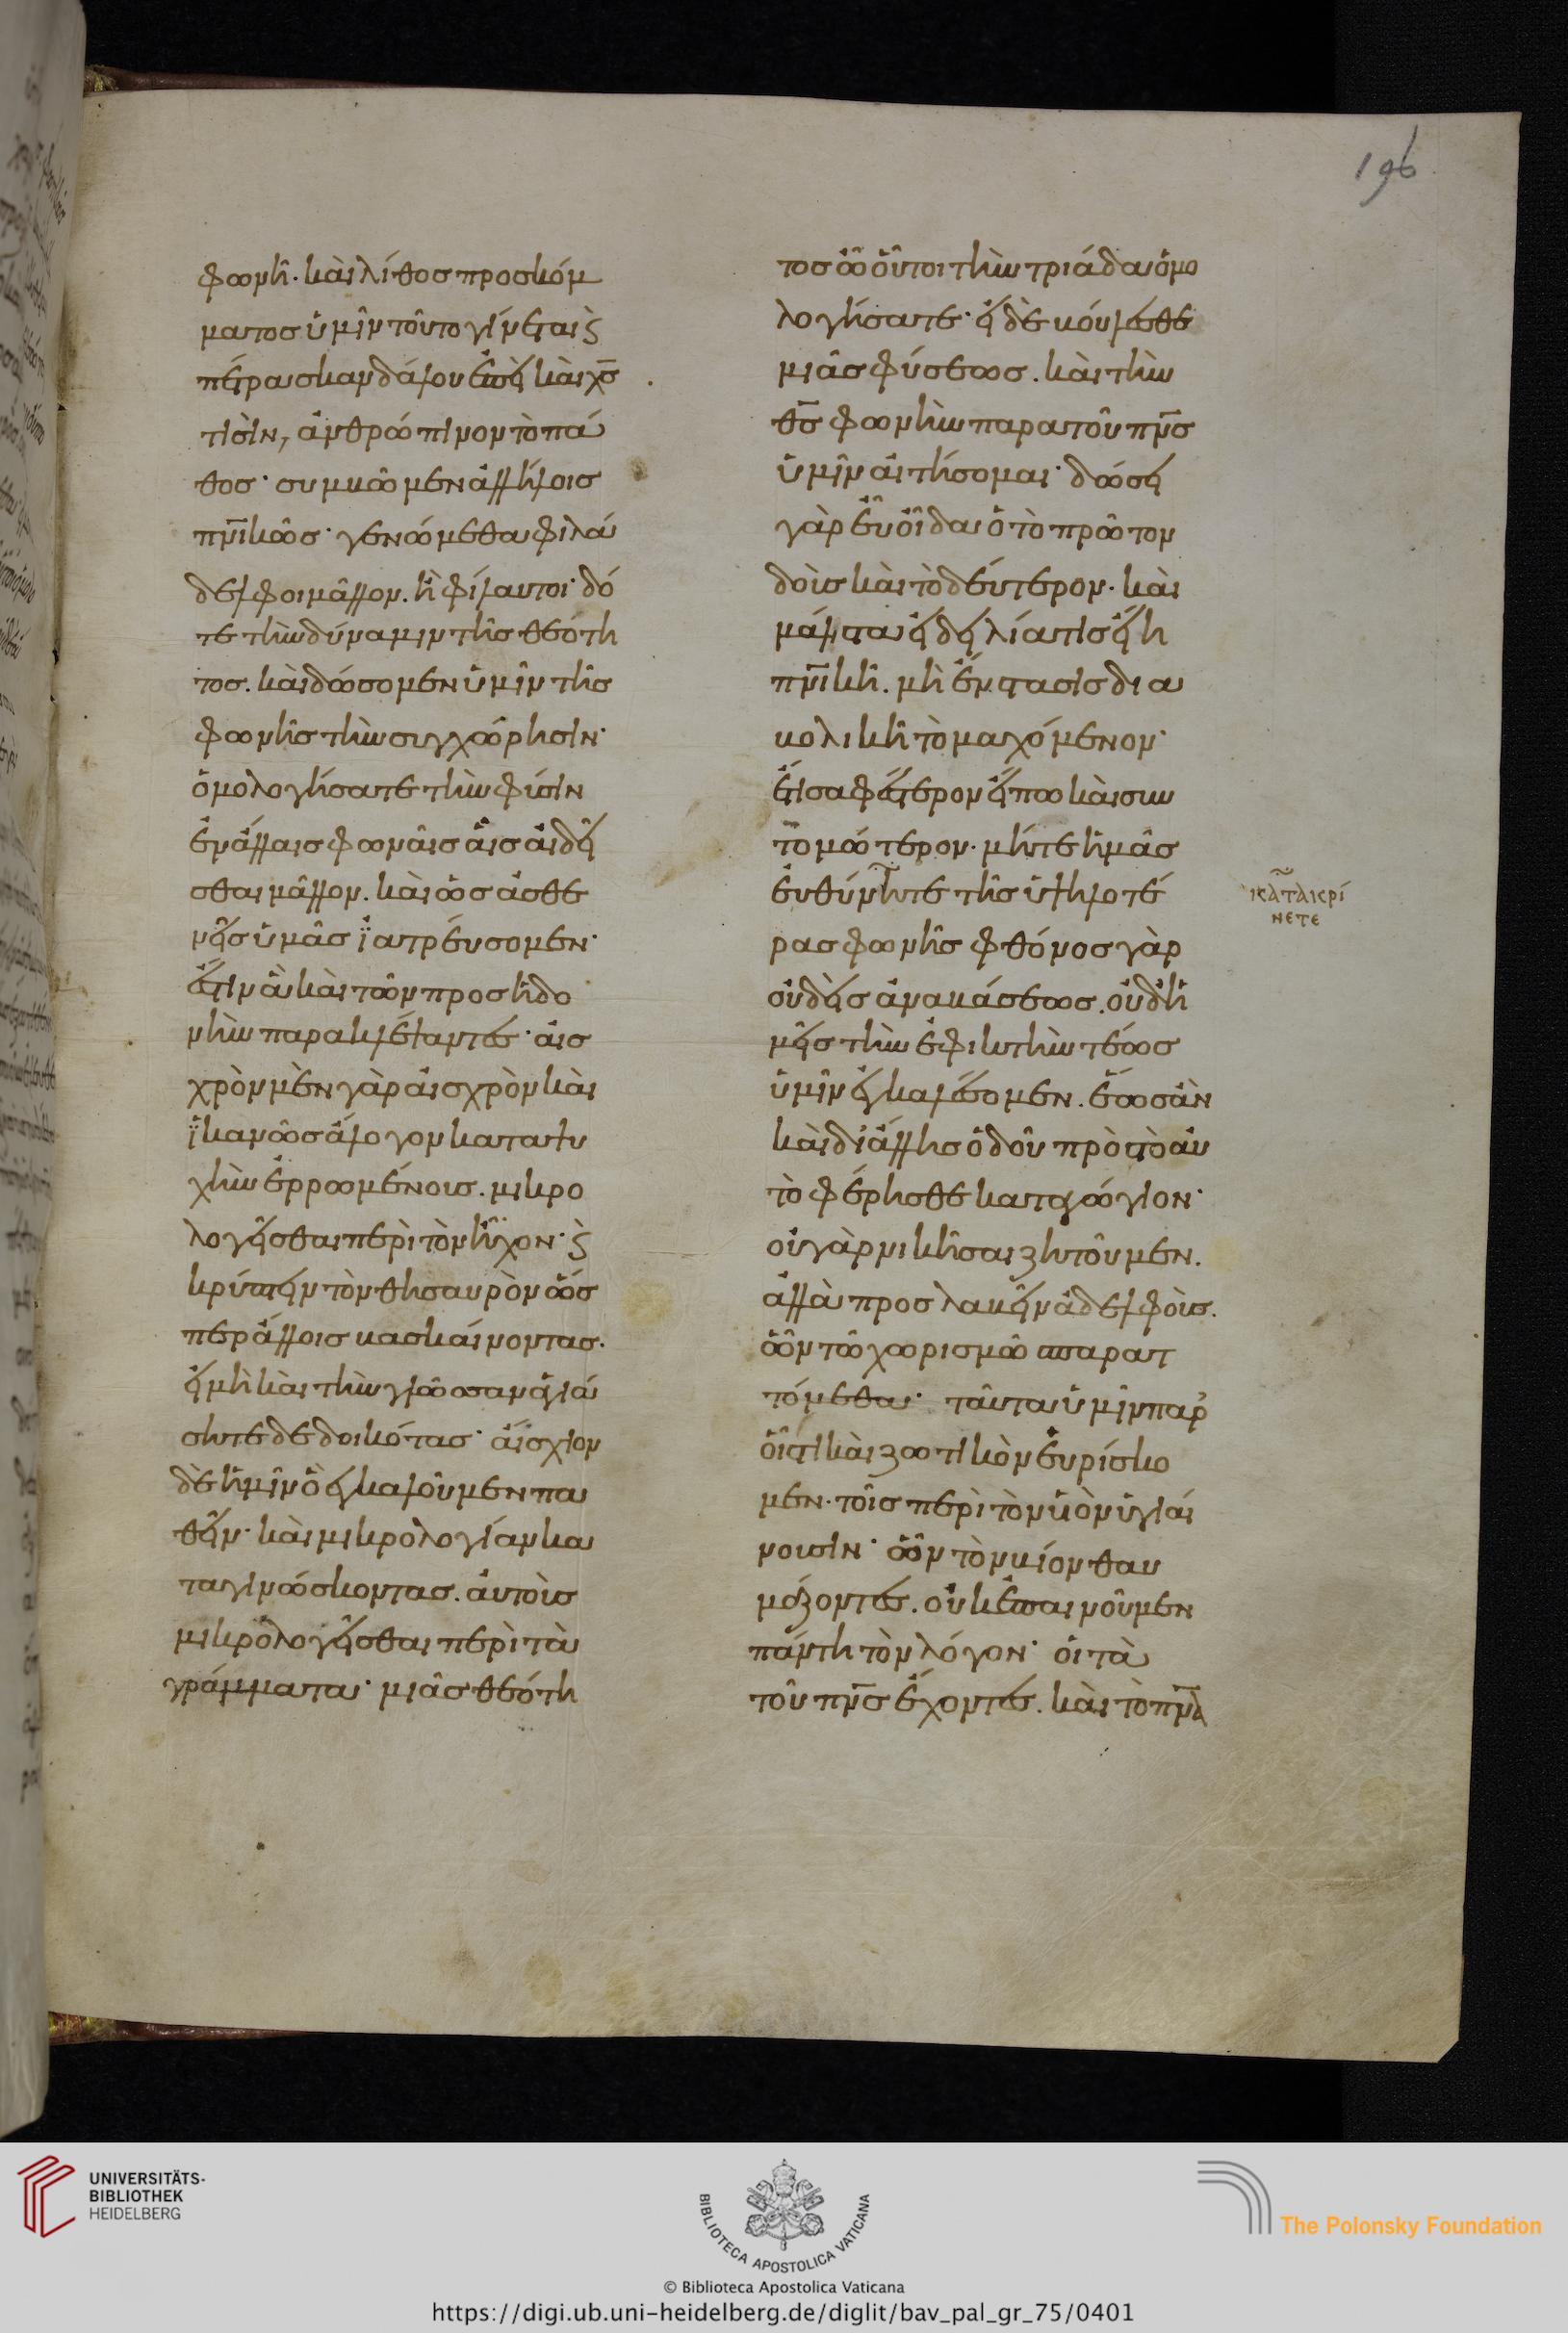 φωνῆ. καὶ λίθος προσκόμ
ματος ὑμῖν τοῦτο γίνεται ϗ
πέτρα σκανδάλου ἐπεὶ καὶ χ̅ς̅
τισὶν, ἀνθρώπινον τὸ πά
θος· συμβῶμεν ἀλλήλοις
πν̅ικῶς· γενώμεθα φιλά
δελφοι μᾶλλον. ἢ φίλαυτοι· δό
τε τὴν δύναμιν τῆς θεότη
τος. καὶ δώσομεν ὑμῖν τῆς
φωνῆς τὴν συγχώρησιν·
ὁμολογήσατε τὴν φύσιν
ἐν ἄλλαις φωναῖς αἷς αἰδεῖ
σθαι μᾶλλον. καὶ ὡς ἀσθε
νεῖς ὑμᾶς ἰατρεύσομεν·
ἔστιν ἃ καὶ τῶν προς ἡδο
νὴν παρακλέψαντες· αἰσ
χρὸν μὲν γὰρ αἰσχρὸν καὶ
ἱκανῶς ἄλογον κατα ψυ
χὴν ἐρρωμένους. μικρο
λογεῖσθαι περὶ τὸν ἦχον· ϗ
κρύπτειν τὸν θησαυρὸν ὥσ
περ ἄλλοις βασκαίνοντας.
εἰ μὴ καὶ τὴν γλῶσσαν ἁγιά
σητε δεδοικότας· αἴσχιον
δὲ ἡμῖν ὃ ἐγκαλοῦμεν πα
θεῖν· καὶ μικρολογίαν κα
ταγινώσκοντας. αὐτοὺς
μικρολογεῖσθαι περὶ τὰ
γράμματα· μιᾶς θεότη
τος ὦ οὗτοι τὴν τριάδα ὁμο
λογήσατε· εἰ δὲ βούλεσθε
μιᾶς φύσεως. καὶ τὴν
θ̅ς̅ φωνὴν παρα τοῦ πν̅ς
ὑμῖν αἰτήσομαι· δώσει
γὰρ εὖ οἶδα ὁ τὸ πρῶτον
δοὺς καὶ τὸ δεύτερον. καὶ
μάλιστα εἰ δειλία τις εἴη
πν̅ικὴ. μὴ ἔνστασις δια
βολικὴ τὸ μαχόμενον·
ἔτι σαφέστερον εἴπω καὶ συν
τομώτερον. μήτε ἡμᾶς
εὐθύνητε τῆς ὑψηλοτέ
ρας φωνῆς φθόνος γὰρ
οὐδεὶς ἀναβάσεως. οὐδ' ἡ
μεῖς τὴν ἐφικτὴν τέως
ὑμῖν ἐγκαλέσομεν. ἕως ἂν
καὶ δι' ἄλλης ὁδοῦ πρὸς τὸ αὐ
τὸ φέρησθε καταγώγιον·
οὐ γὰρ νικῆσαι ζητοῦμεν.
ἀλλὰ προσλαβεῖν ἀδελφοὺς.
ὧν τῶ χωρισμῶ σπαρατ
τόμεθα· ταῦτα ὑμῖν παρ'
οἷς τι καὶ ζωτικὸν εὑρίσκο
μεν. τοῖς περὶ τὸν υἱὸν ὑγιαί
νουσιν· ὧν τὸν βίον θαυ
μάζοντες. οὐκ ἐπαινοῦμεν
πάντη τὸν λόγον· οἱ τὰ
τοῦ πν̅ς ἔχοντες. καὶ τὸ πν̅α
κατακρί
νετε
196
UNIVERSITÄTS-
BIBLIOTHEK
HEIDELBERG
BIBLIOTECA APOSTOLICA VATICANA
The Polonsky Foundation
© Biblioteca Apostolica Vaticana
https://digi.ub.uni-heidelberg.de/diglit/bav_pal_gr_75/0401